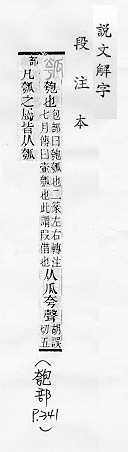 說文解字
段注本
瓠
匏也
包部曰匏瓠也二篆左右轉注
七月傳曰壷瓠也此謂叚借也
从瓜夸聲
胡誤
切五
部
凡瓠之屬皆从瓠
(瓠部
P.341)